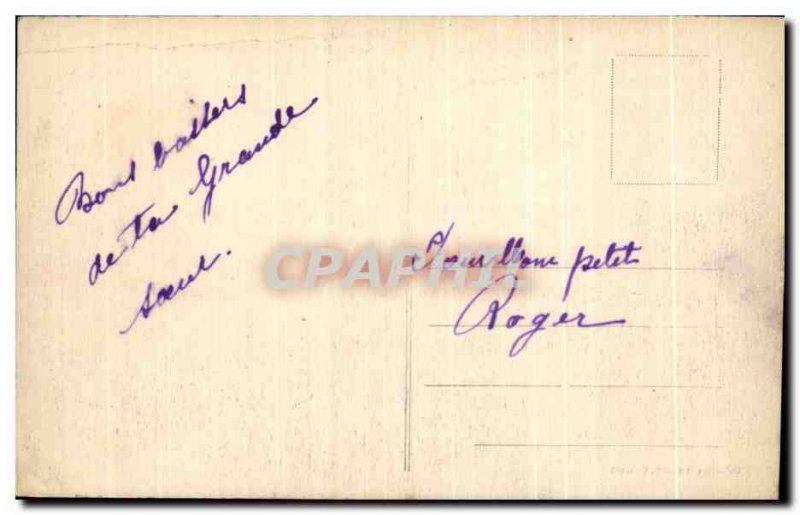 Bons baisers
de ta Grande
sœur.
CPAPHIL
Pour mon petit
Roger